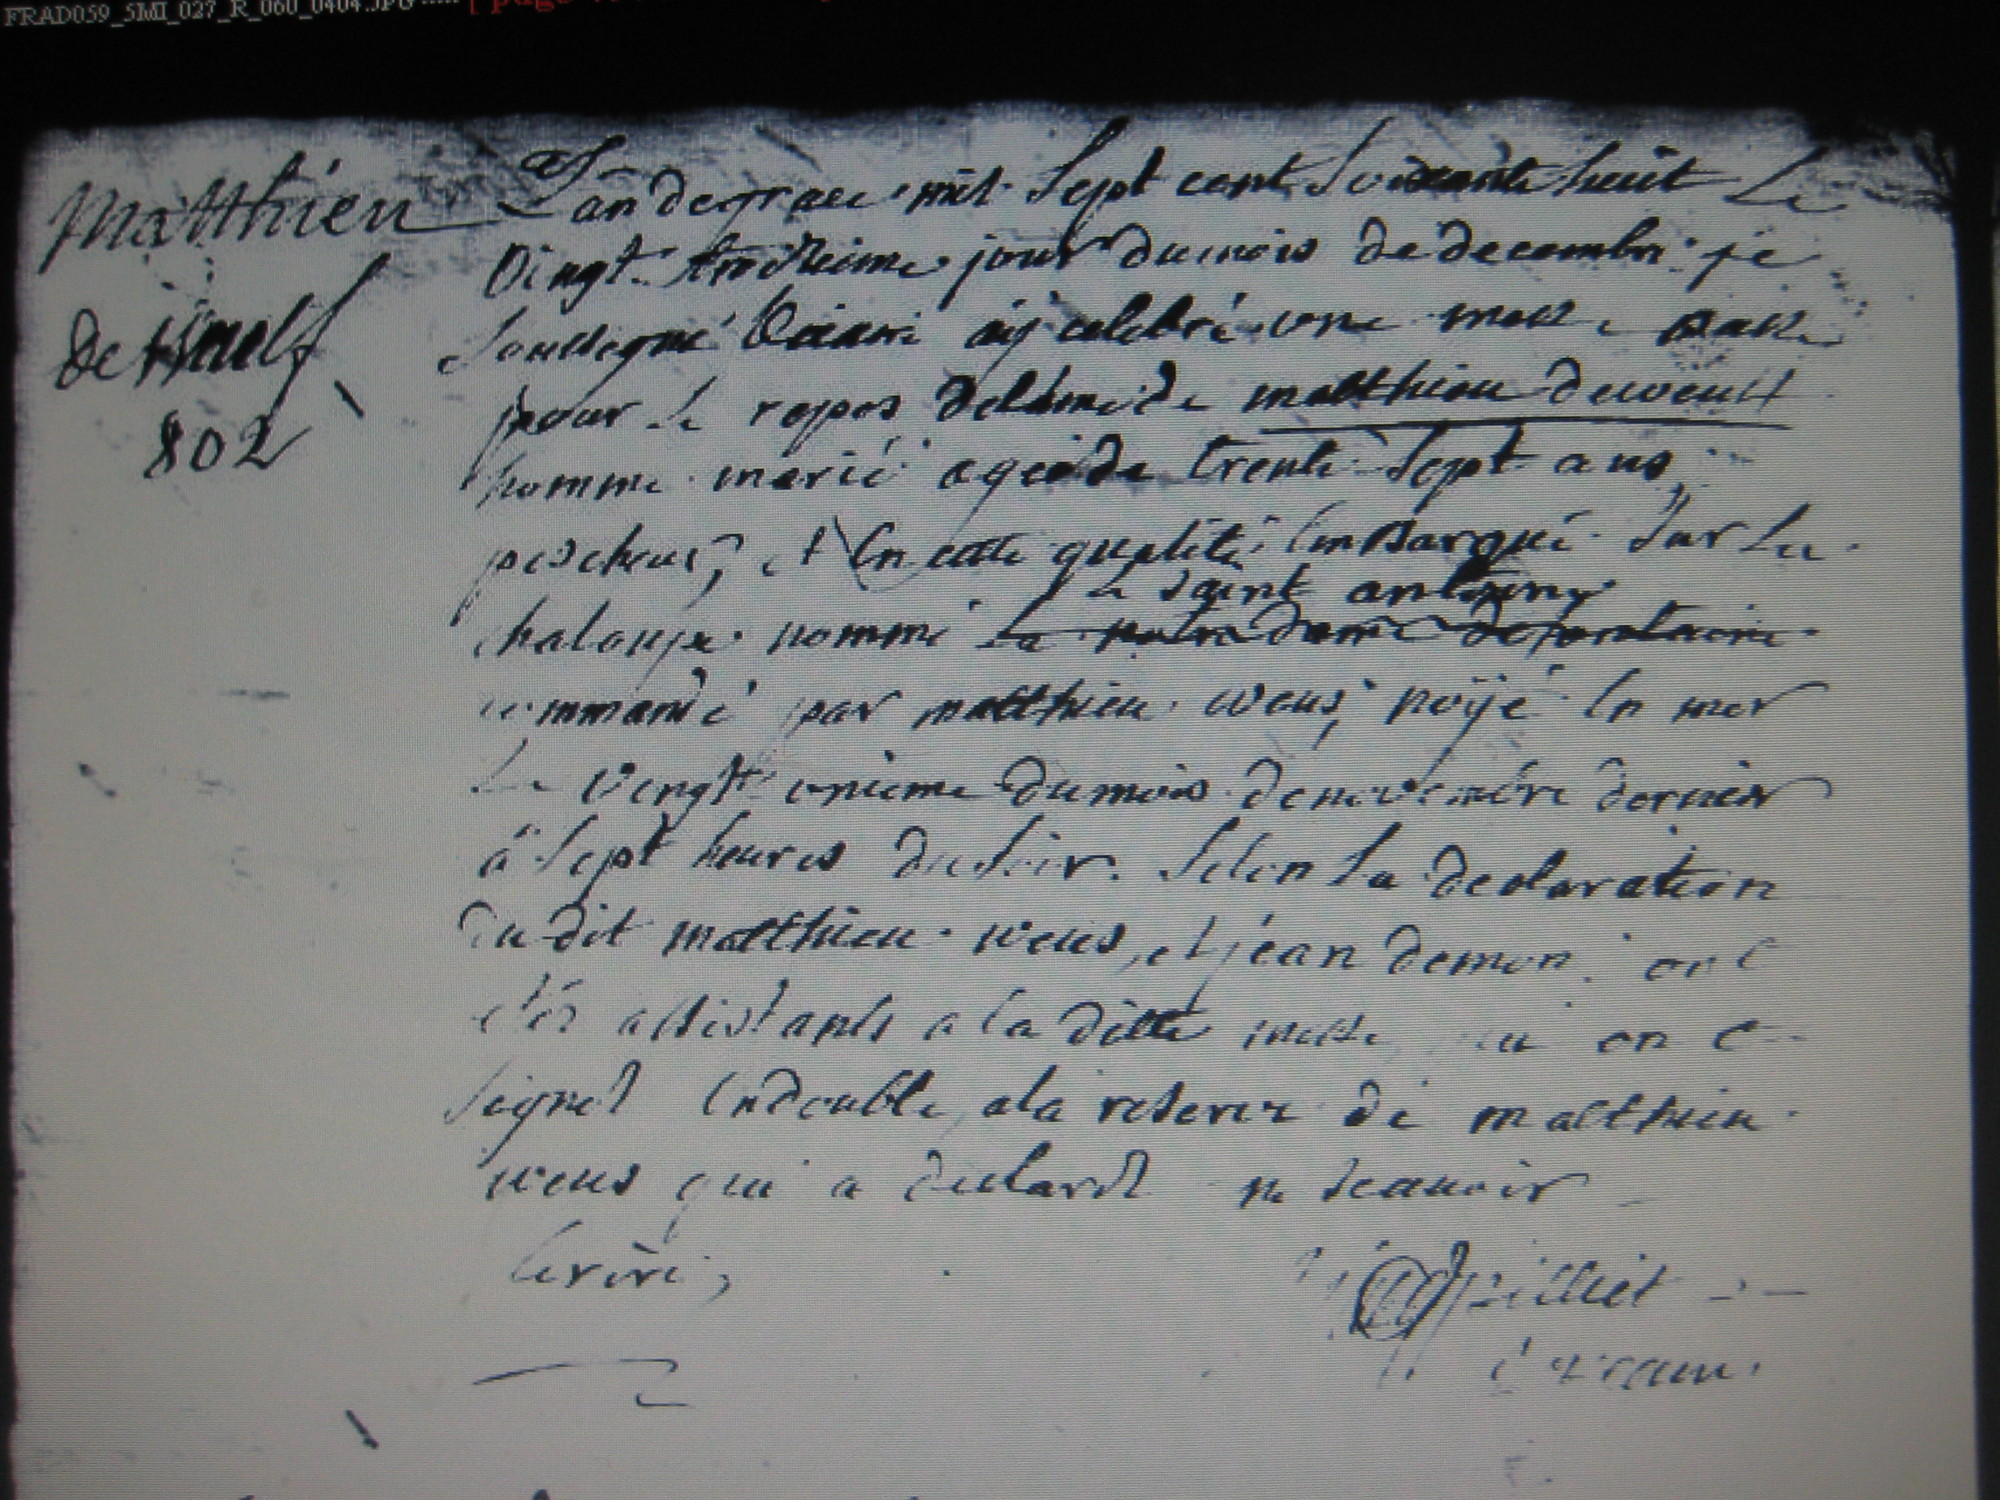 FRAD059_5MI_027_R_060_0404.JPG ----- [ page
Matthieu
de Hwelf
802
L'an de grace mil sept cent soixante huit Le
vingt troisieme jour du mois de decembre je
soussigné vicaire aij celebré une messe basse
pour le repos de l'ame de matthieu deweulf
homme marié agé de trente sept ans
pescheur, et En cette qualité Embarqué sur La
Le saint antony
chaloupe nommé La notre dame de fontaine
commandé par matthieu weus, noijé En mer
Le vingt unieme du mois de novembre dernier
à sept heures du soir. selon La declaration
du dit matthieu weus, et jean demon ont
étés assistants a la ditte messe on t
signés En double, a la reserve de matthieu
weus qui a declaré ne scauoir
Ecrire,
vicaire